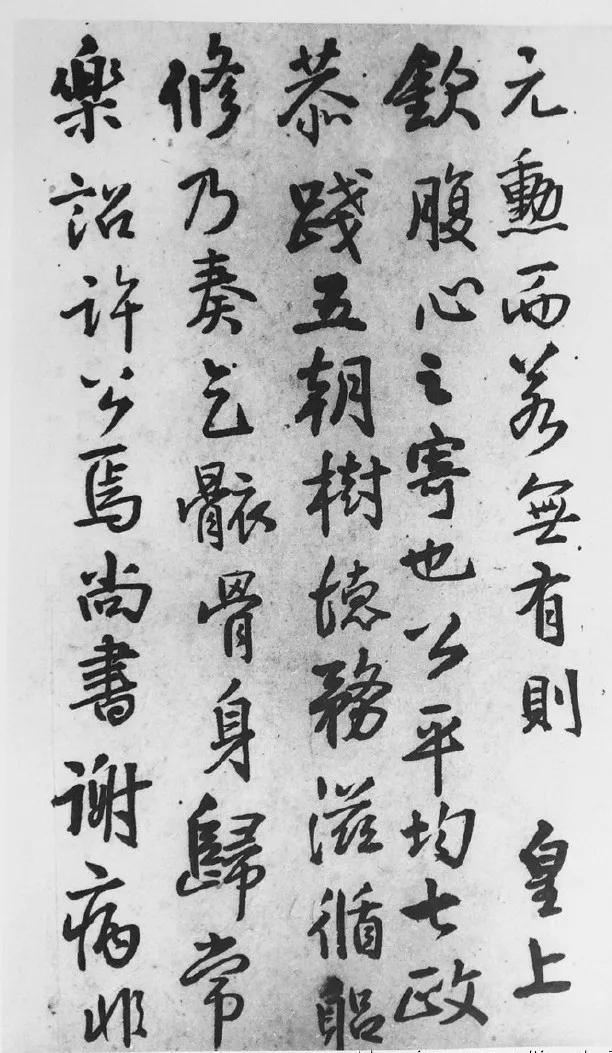 元勳而若無有則 皇上
欽腹心之寄也公平均七政
恭踐五朝樹徳務滋循躳
修乃奏乞骸骨身歸常
樂詔許公焉尚書謝病非